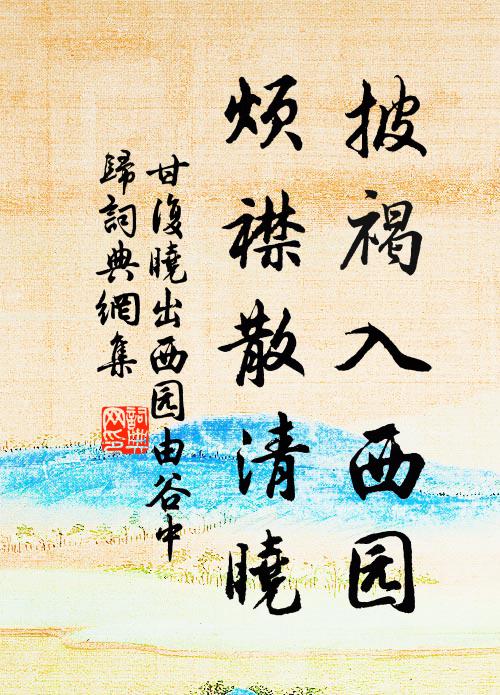 披褐入西园
烦襟散清曉
甘復曉出西园由谷中
歸詞典網集
詞典网印